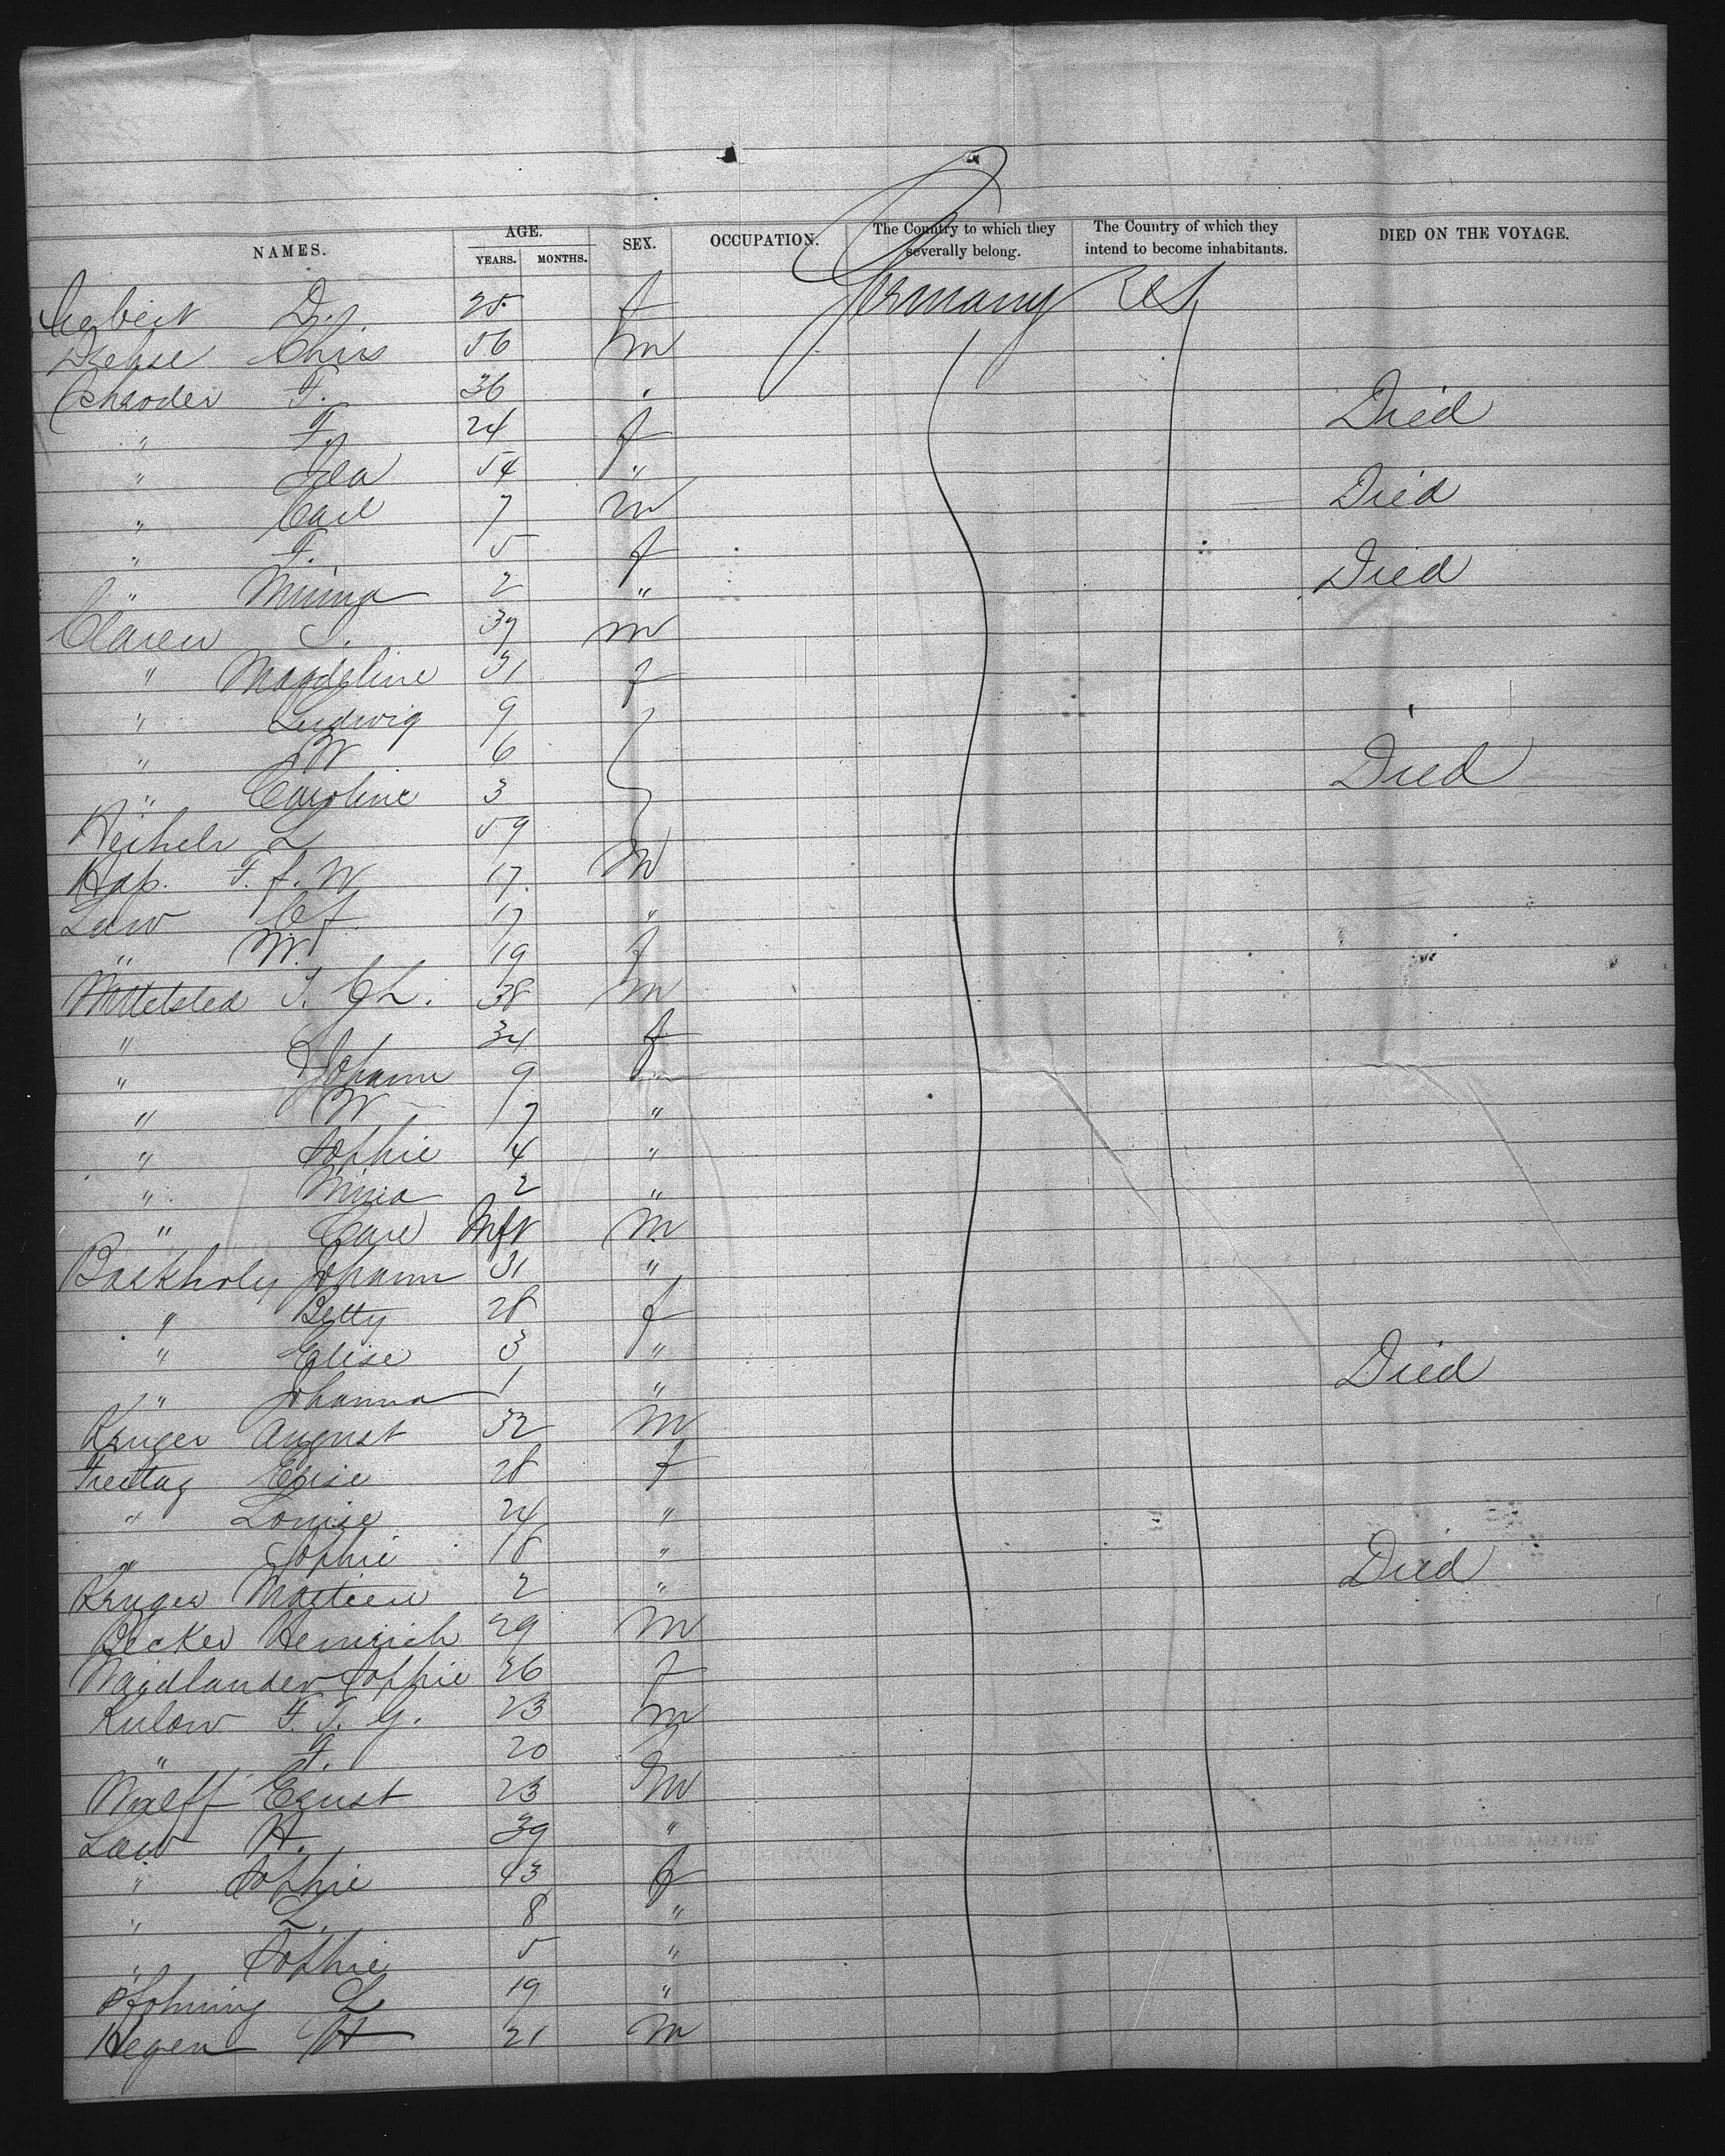 NAMES. AGE. YEARS. MONTHS. SEX. OCCUPATION. The Country to which they severally belong. The Country of which they intend to become inhabitants. DIED ON THE VOYAGE.
D. 25 f Germany
Chris 56 m
Schroder F. 36 "
" F. 24 f Died
" 54 "
" Carl 7 m Died
" F. 5 f
" Minna 2 " Died
Claren J. 37 m
" Magdeline 31 f
" Ludwig 9
" W 6
" Caroline 3 Died
L 59
F. f. W 17 m
Law C f. 17 "
" W. 19 f
Mittelsted J. Ch. 38 m
" 34 f
" Johann 9
" W 7 "
" Sophie 4 "
" Mina 2 "
" Carl Inft m
Backholy Johann 31 "
" Betty 28 f
" Elise 3 "
" Johanna 1 " Died
Kruger August 32 m
Freitag Elise 28 f
" Louise 24 "
" Sophie 18 "
Kruger 2 " Died
Becker Heinrich 29 m
Sophie 26 f
Kulow F. J. G. 23 m
" F. 20 f
Wolff Ernst 23 m
Law H. 39 "
" Sophie 43 f
" L. 8 "
" Sophie 5 "
L 19 "
Hegen H 21 m